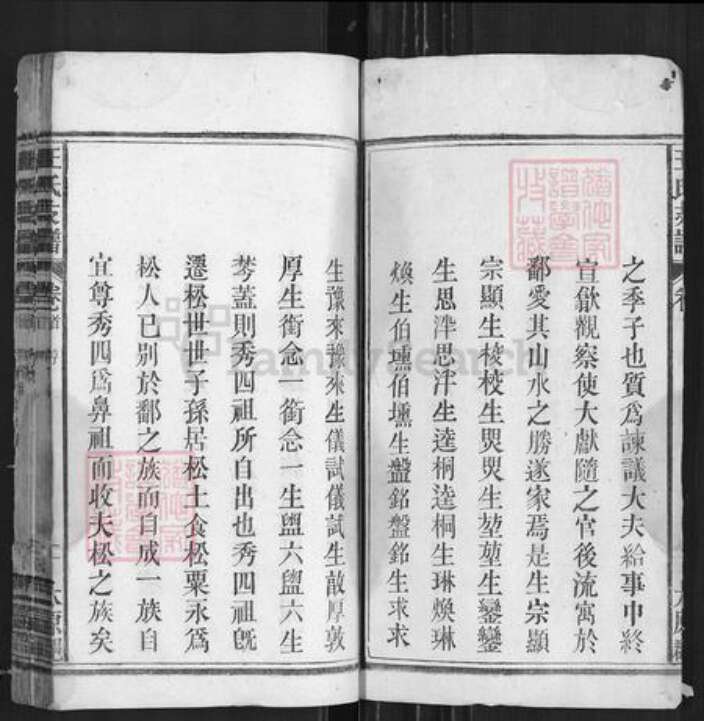 之季子也質爲諫議大夫給事中終
宣歙觀察使大獻隨之官後流寓於
鄱愛其山水之勝遂家焉是生宗顯
宗顯生棱棱生煛煛生堃堃生鑾鑾
生思泮思泮生逵桐逵桐生琳煥琳
煥生伯壎伯壎生盤銘盤銘生求求
生豫來豫來生儀試儀試生敱厚敦
厚生衘念一衘念一生盥六盥六生
棽蓋則秀四祖所自出也秀四祖旣
遷松世世子孫居松土食松粟永爲
松人已别於鄱之族而自成一族自
宜尊秀四爲鼻祖而收夫松之族矣
王氏支譜
卷首
FamilySearch